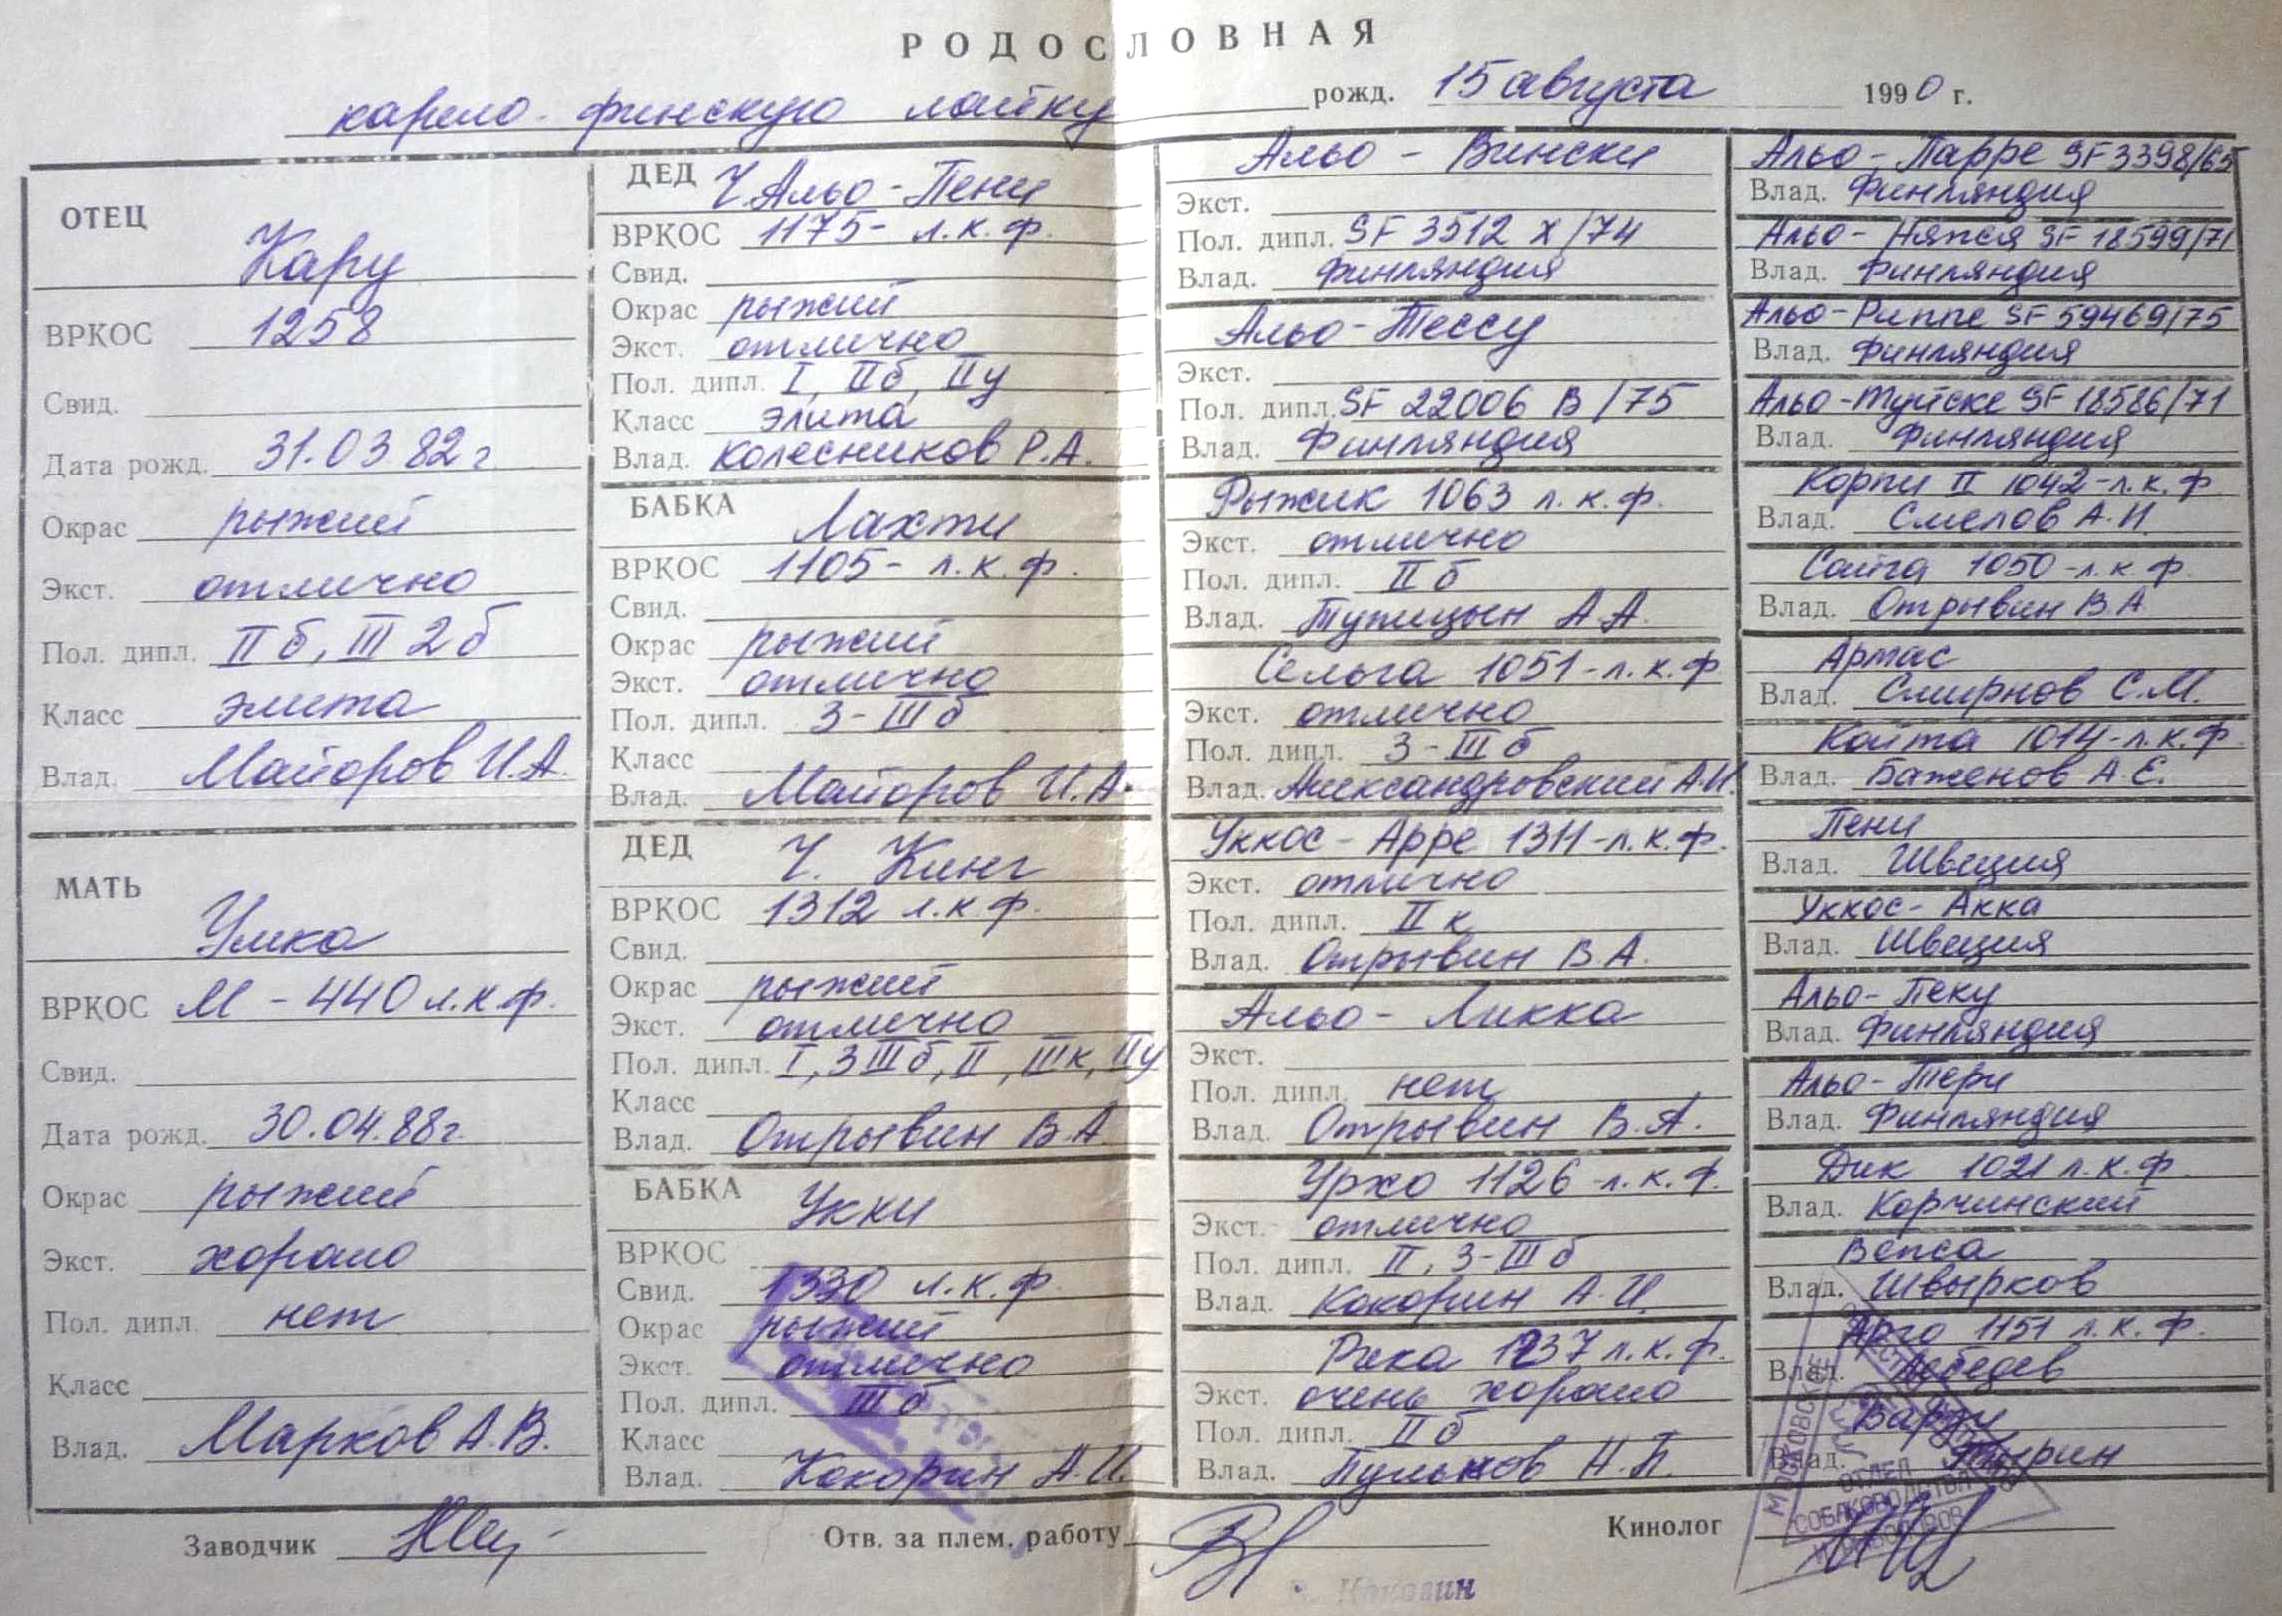 РОДОСЛОВНАЯ
карело-финскую лайку рожд. 15 августа 1990 г.
ОТЕЦ
Кару
ВРКОС 1258
Свид.
Дата рожд. 31.03 82 г
Окрас рыжий
Экст. отлично
Пол. дипл. II б, III 2б
Класс элита
Влад. Майоров И.А.
МАТЬ
Умка
ВРКОС М-440 л.к.ф.
Свид.
Дата рожд. 30.04.88г.
Окрас рыжий
Экст. хорошо
Пол. дипл. нет
Класс
Влад. Марков А.В.
ДЕД Ч. Альо-Пени
ВРКОС 1175- л.к.ф.
Свид.
Окрас рыжий
Экст. отлично
Пол. дипл. I, IIб, IIу
Класс элита
Влад. Колесников Р.А.
БАБКА Лахти
ВРКОС 1105- л.к.ф.
Свид.
Окрас рыжий
Экст. отлично
Пол. дипл. 3-IIIб
Класс
Влад. Майоров И.А.
ДЕД Ч. Кинг
ВРКОС 1312 л.к.ф.
Свид.
Окрас рыжий
Экст. отлично
Пол. дипл. I, 3IIIб, II, IIIк, IIу
Класс
Влад. Отрывин В.А
БАБКА Укки
ВРКОС
Свид. 1330 л.к.ф.
Окрас рыжий
Экст. отлично
Пол. дипл. IIIб
Класс
Влад. Кокорин А.И.
Альо - Вински
Экст.
Пол. дипл. SF 3512 X/74
Влад. Финляндия
Альо-Тессу
Экст.
Пол. дипл. SF 22006 В/75
Влад. Финляндия
Рыжик 1063 л.к.ф.
Экст. отлично
Пол. дипл. II б
Влад. Тужицын А.А.
Сельга 1051-л.к.ф
Экст. отлично
Пол. дипл. 3-III б
Влад. Александровский А.И.
Уккос-Арре 1311-л.к.ф.
Экст. отлично
Пол. дипл. II к
Влад. Отрывин В.А.
Альо- Ликка
Экст.
Пол. дипл. нет
Влад. Отрывин В.А.
Урхо 1126-л.к.ф.
Экст. отлично
Пол. дипл. II, 3-III б
Влад. Кокорин А.И.
Рика 1237 л.к.ф.
Экст. очень хорошо
Пол. дипл. II б
Влад. Пульнов Н.П.
Альо-Парре SF 3398/65
Влад. Финляндия
Альо-Няпся SF 18599/71
Влад. Финляндия
Альо-Риппе SF 59469/75
Влад. Финляндия
Альо-Туйске SF 18586/71
Влад. Финляндия
Корпи II 1042-л.к.ф
Влад. Смелов А.И.
Сайга 1050-л.к.ф.
Влад. Отрывин В.А
Армас
Влад. Смирнов С.М.
Койта 1014-л.к.ф.
Влад. Баженов А.Е.
Пени
Влад. Швеция
Уккос-Акка
Влад. Швеция
Альо-Пеку
Влад. Финляндия
Альо-Тери
Влад. Финляндия
Дик 1021 л.к.ф.
Влад. Корчинский
Вепса
Влад. Швырков
Арго 1151 л.к.ф.
Влад. Лебедев
Варду
Влад. Тырин
МОСКОВСКОЕ
ОТДЕЛ
СОБАКОВОДСТВА
Заводчик
Отв. за плем. работу
Кинолог